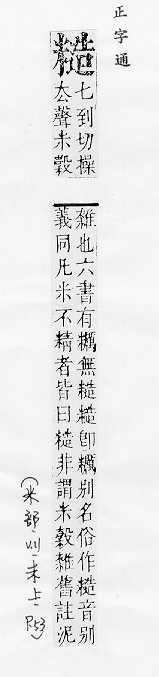 正字通
糙
七到切操
厺聲米穀
雜也六書有糲無糙糙卽糲別名俗作糙音別
義同凡米不精者皆曰糙非謂米穀雜舊註泥
(米部 未上 P53)